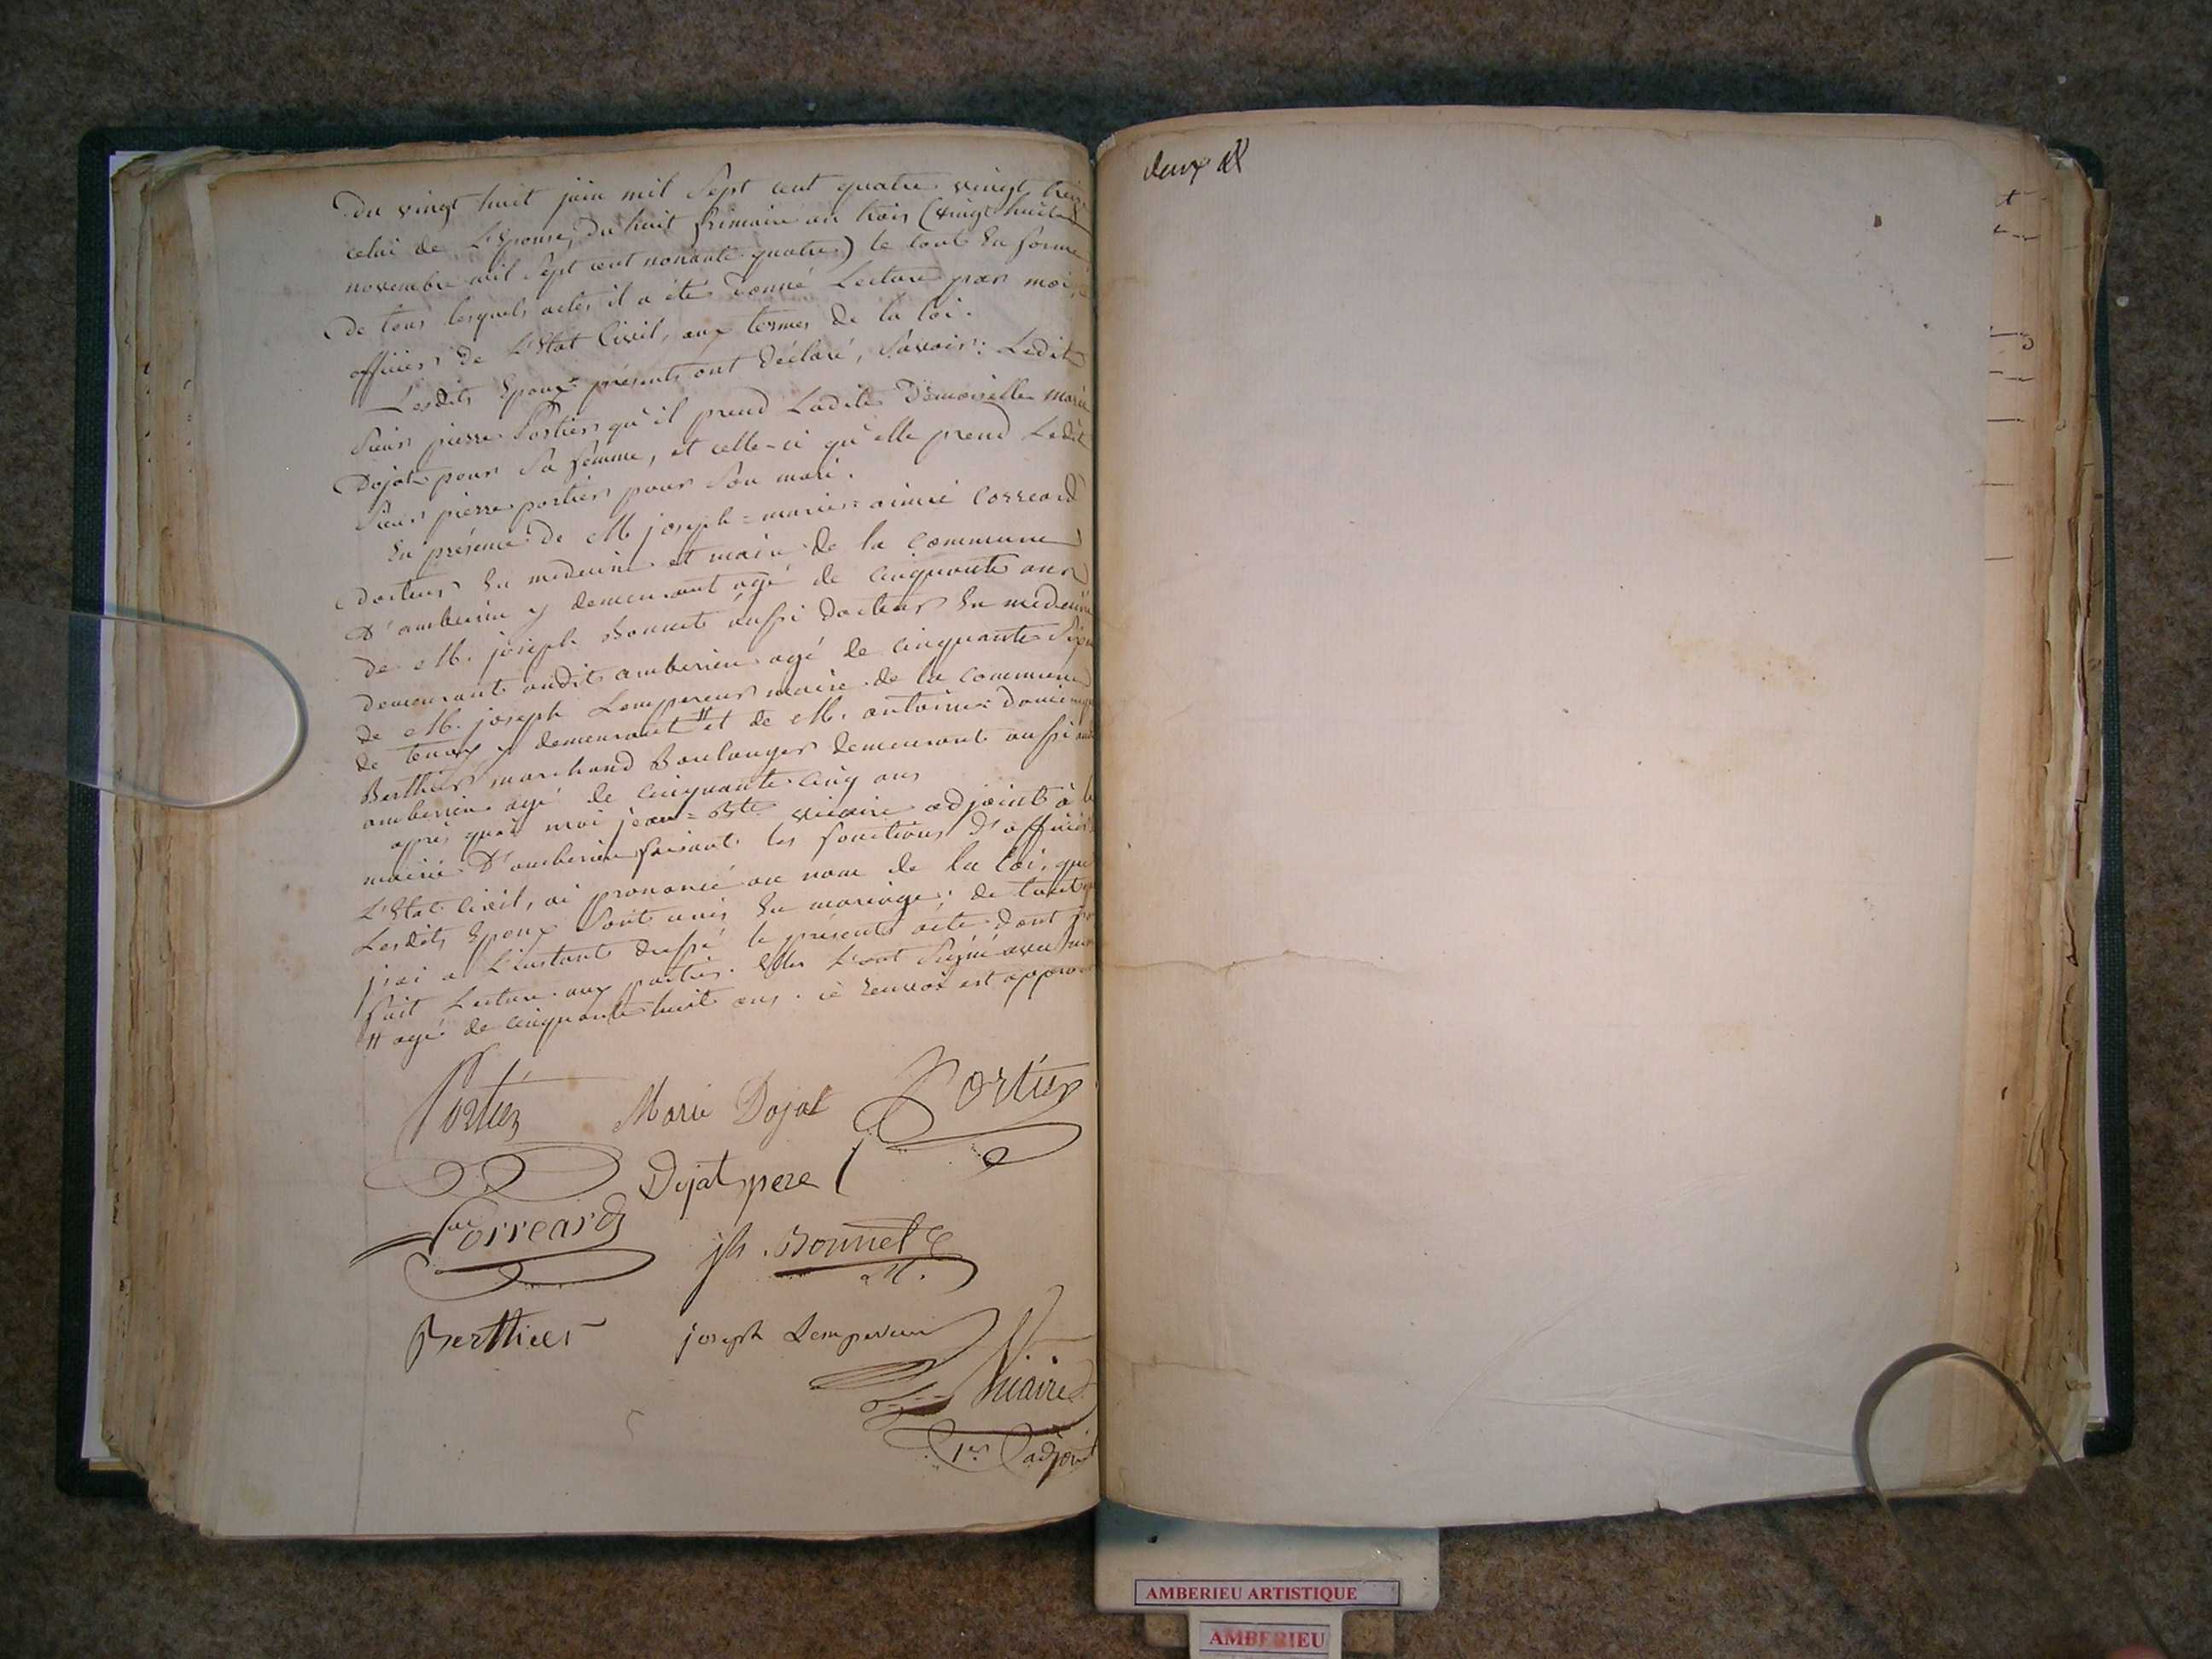 Du vingt huit juin mil Sept cent quatre vingt treize
celui de L'Epouse, du huit frimaire an trois (vingt huit
novembre mil Sept cent nonante quatre) le tout En forme
De tous lesquels actes il a été donné Lecture par moi,
officier de L'Etat Civil, aux termes de la loi.
Lesdits Epoux présents ont déclaré, Savoir: Ledit
Sieur pierre Portier qu'il prend Ladite Demoiselle marie
Dojat pour Sa femme, et celle-ci qu'elle prend Ledit
Sieur pierre portier pour Son mari.
En présence de M joseph=marie=aimé Correard
Docteur En medecine et maire de la Commune
D'amberieu y demeurant agé de Cinquante ans
de M. joseph Bonnet aussi docteur En medecine
demeurant audit amberieu agé de cinquante Six
de M. joseph Lempereur maire de la commune
de tenay y demeurant # et de M. antoine=Dominique
Berthier marchand Boulanger demeurant aussi
amberieu agé de cinquante cinq ans
après quoi moi jean=Bte Vicaire adjoint à la
mairie D'amberieu faisant les fonctions d'officier
L'Etat Civil, ai prononcé au nom de la loi, que
Lesdits Epoux Sont unis En mariage; de tout
j'ai a L'instant dressé le présent acte dont j'ai
fait Lecture aux parties. Elles L'ont Signé avec
# agé de cinquante huit ans. ce renvoi est approuvé
Portier Marie Dojat Portier
Dojat pere
Correard jh. Bonnet
D. M.
Berthier joseph Lempereur
Vicaire
1er adjoint
deux
AMBERIEU ARTISTIQUE
AMBERIEU